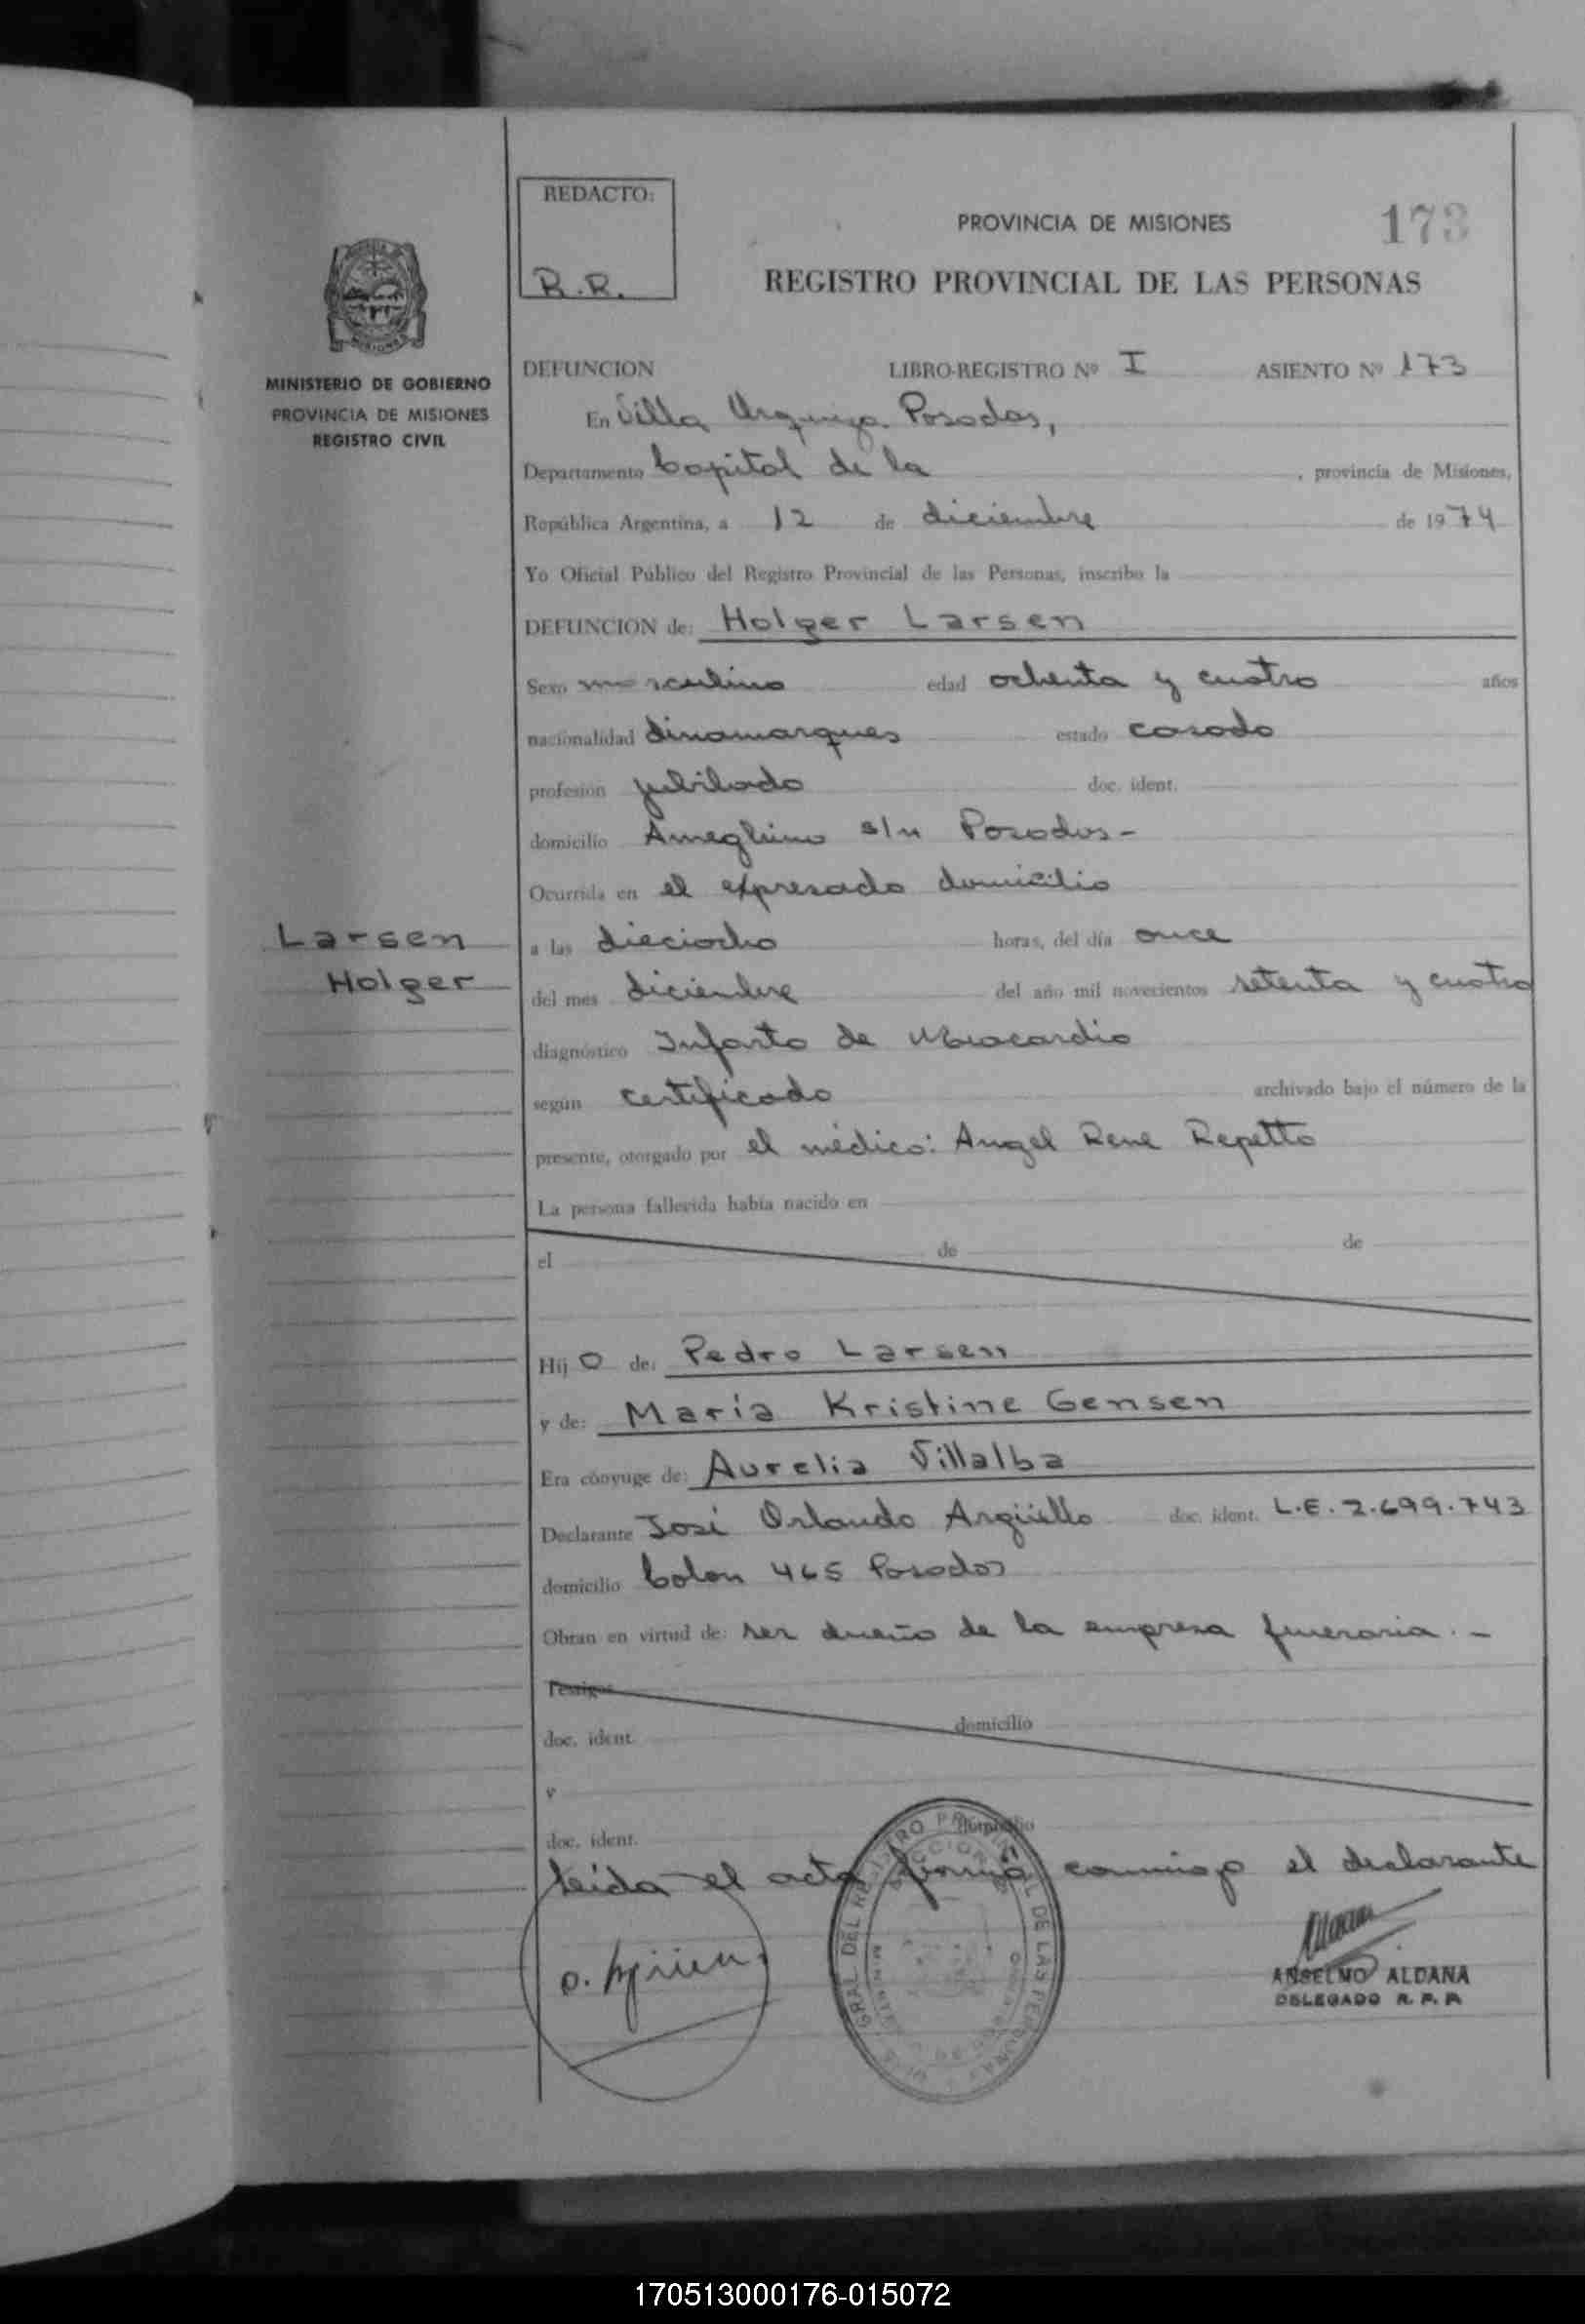 REDACTO:
R.R.
PROVINCIA DE MISIONES
173
REGISTRO PROVINCIAL DE LAS PERSONAS
MINISTERIO DE GOBIERNO
PROVINCIA DE MISIONES
REGISTRO CIVIL
DEFUNCION LIBRO-REGISTRO Nº I ASIENTO Nº 173
En Villa Urquiza Posadas,
Departamento Capital de la , provincia de Misiones,
República Argentina, a 12 de diciembre de 1974
Yo Oficial Público del Registro Provincial de las Personas, inscribo la
DEFUNCION de: Holger Larsen
Sexo masculino edad ochenta y cuatro años
nacionalidad dinamarques estado casado
profesión jubilado doc. ident.
domicilio Ameghino s/n Posadas-
Ocurrida en el expresado domicilio
Larsen
Holger
a las dieciocho horas, del día once
del mes diciembre del año mil novecientos setenta y cuatro
diagnóstico Infarto de Miocardio
según certificado archivado bajo el número de la
presente, otorgado por el médico: Angel Rene Repetto
La persona fallecida había nacido en
el de de
Hij o de: Pedro Larsen
y de: María Kristine Gensen
Era cónyuge de: Aurelia Villalba
Declarante José Orlando Argüello doc. ident. L.E. 2.699.743
domicilio Colon 465 Posadas
Obran en virtud de: ser dueño de la empresa funeraria.-
Testigos
doc. ident. domicilio
y
doc. ident. domicilio
Leída el acta firma conmigo el declarante
ANSELMO ALDANA
DELEGADO R. P. P.
170513000176-015072